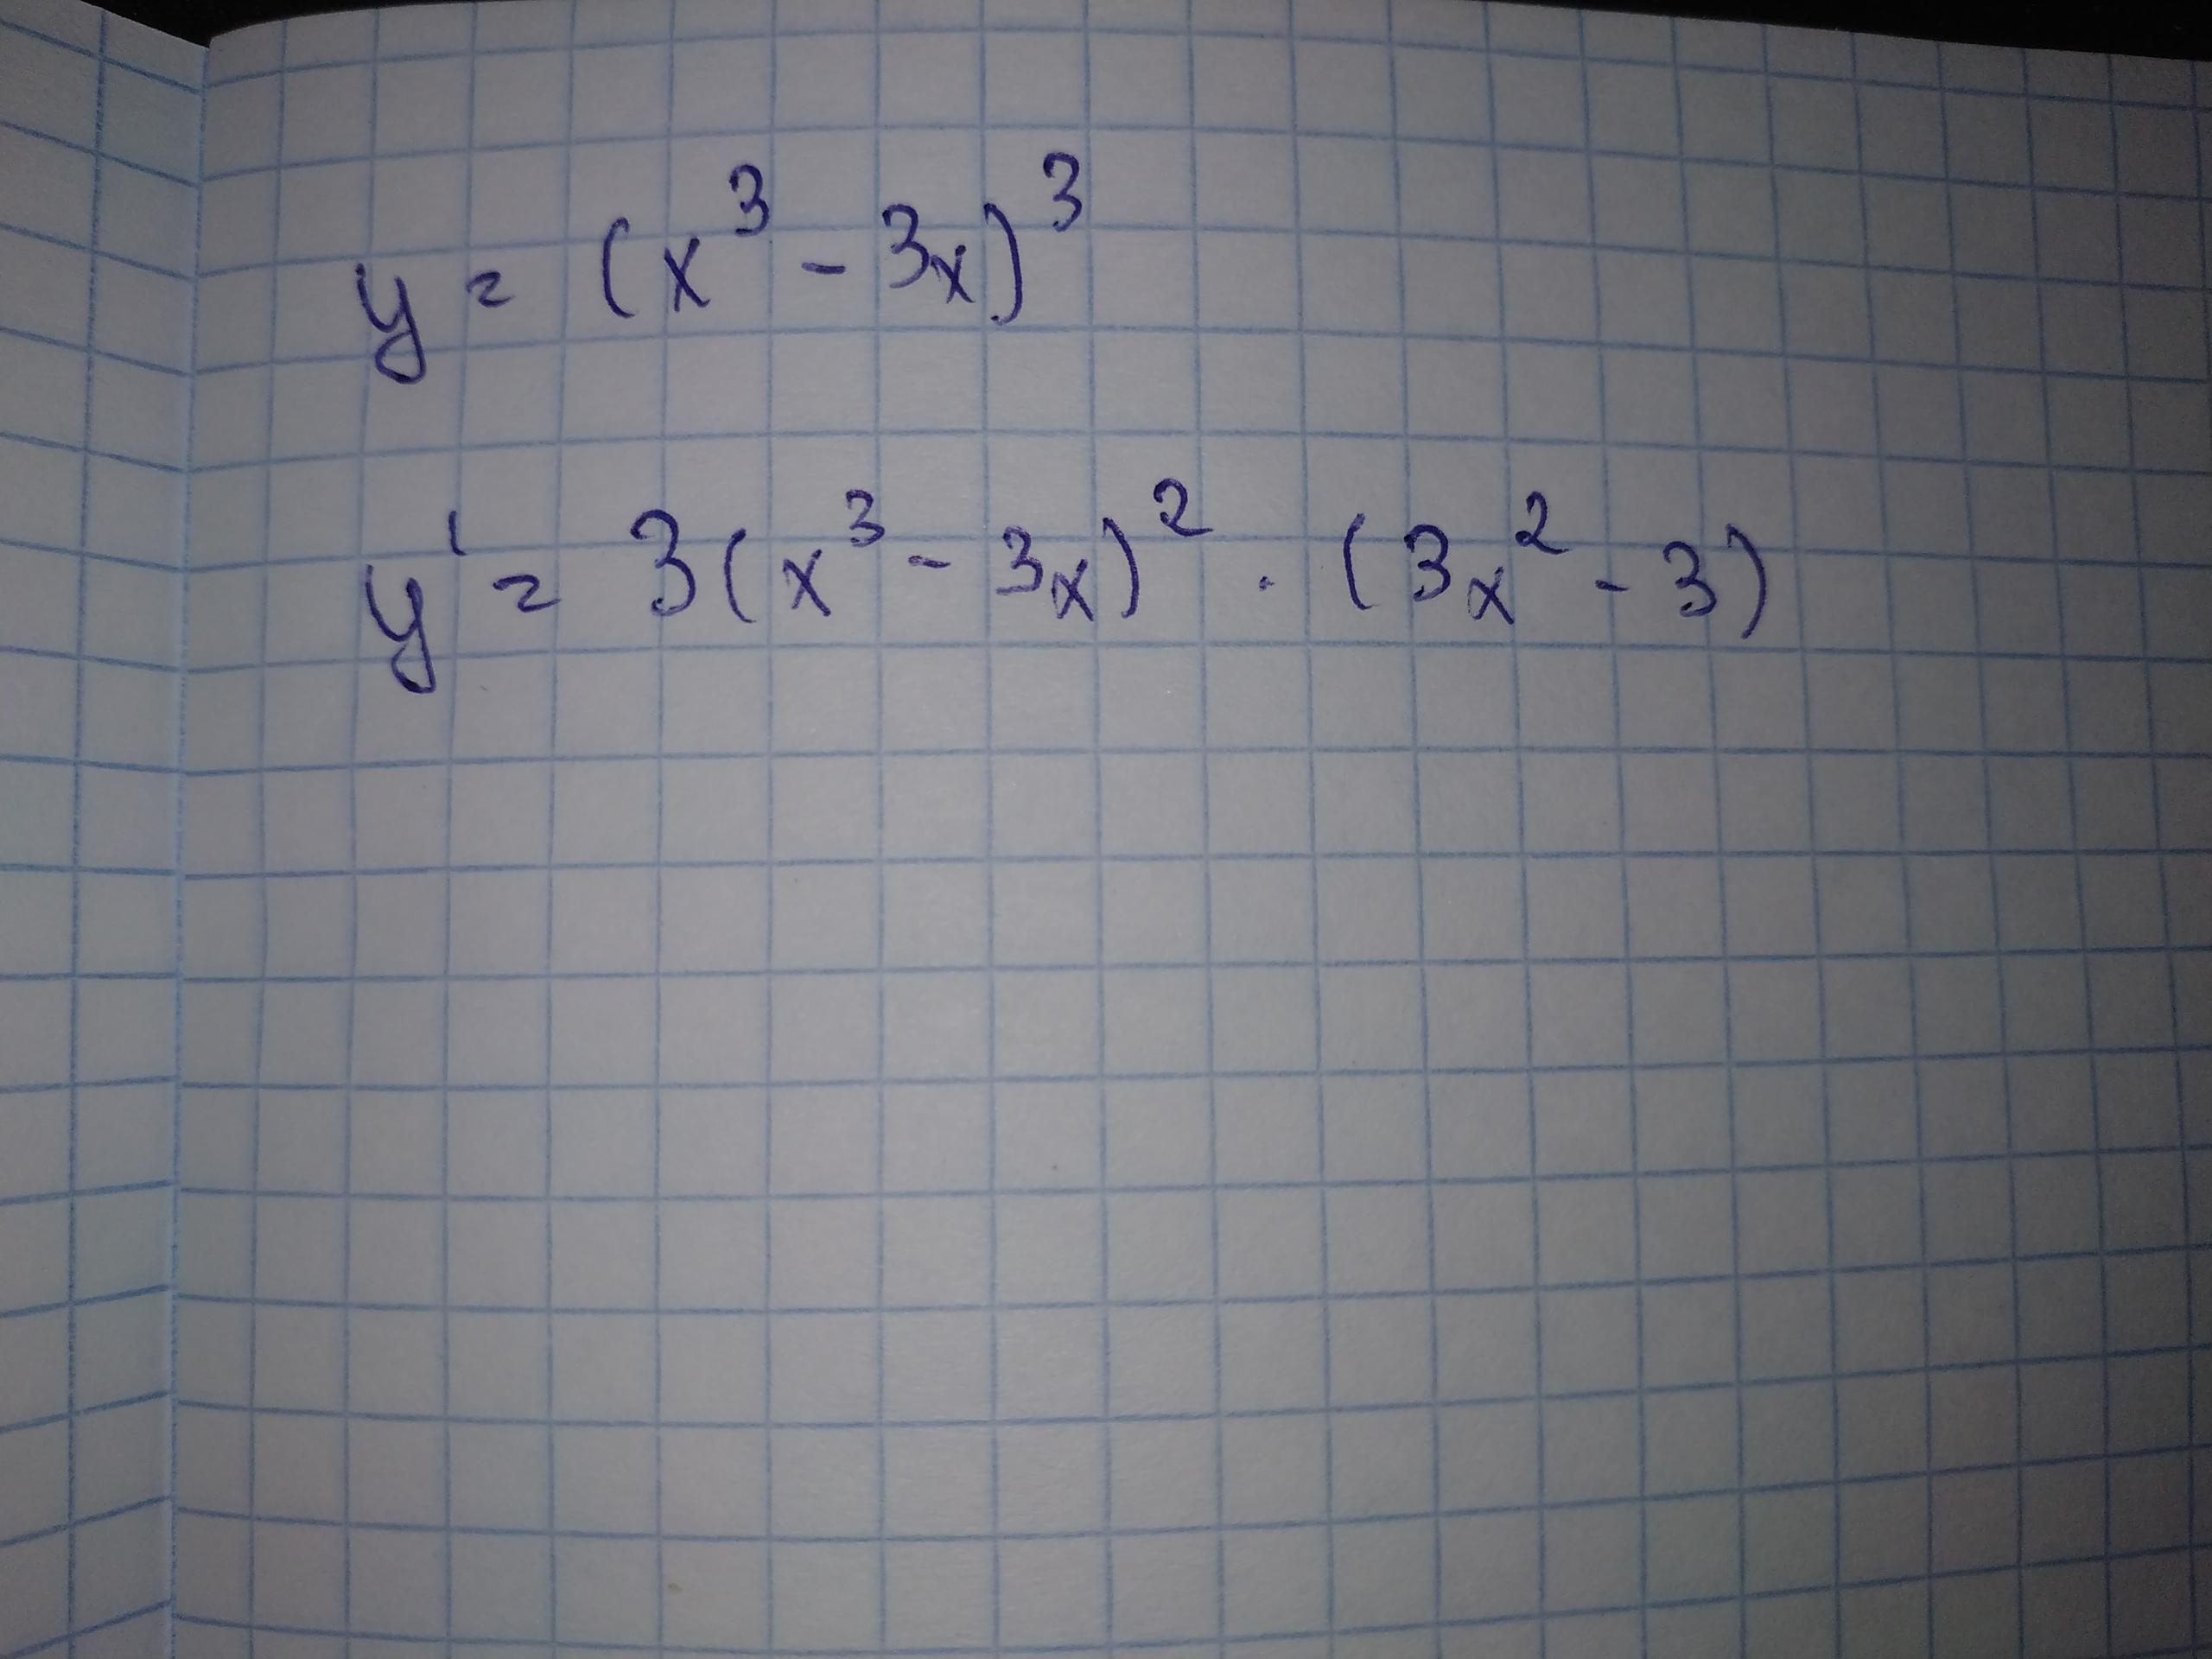 y = (x³ - 3x)³
y' = 3(x³ - 3x)² · (3x² - 3)